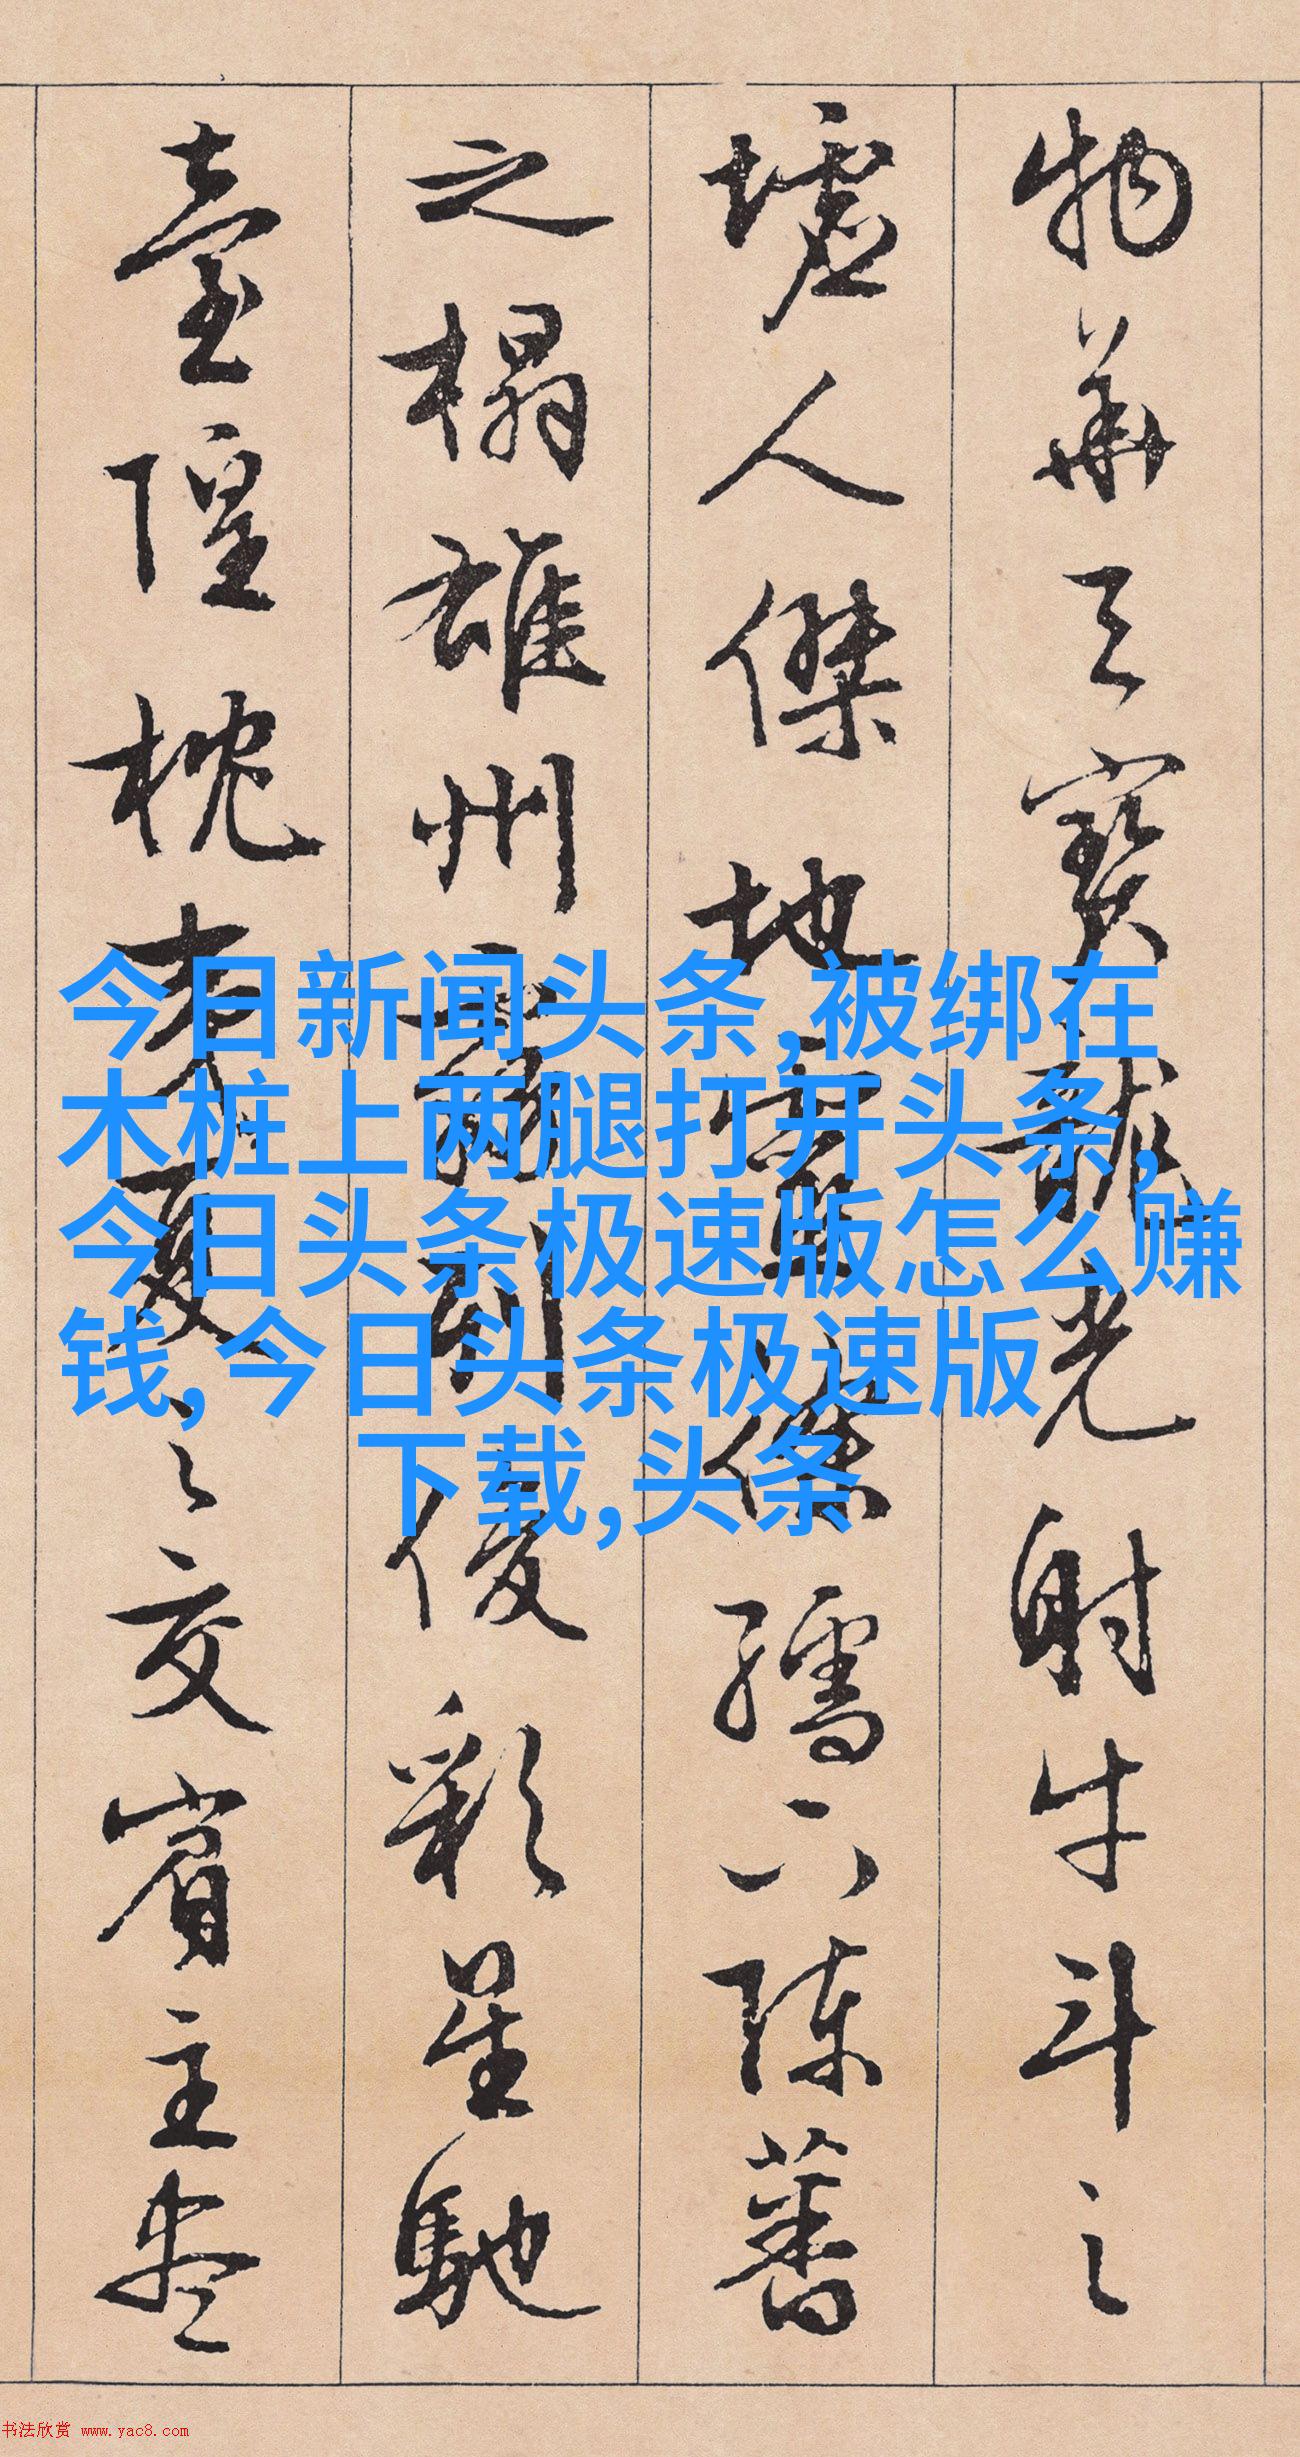 物華天寶龍光射牛斗之
墟人傑地靈徐孺下陳蕃
之榻雄州霧列俊彩星馳
臺隍枕夷夏之交賓主盡
今日新闻头条,被绑在
木桩上两腿打开头条,
今日头条极速版怎么赚
钱,今日头条极速版
下载,头条
书法欣赏 www.yac8.com